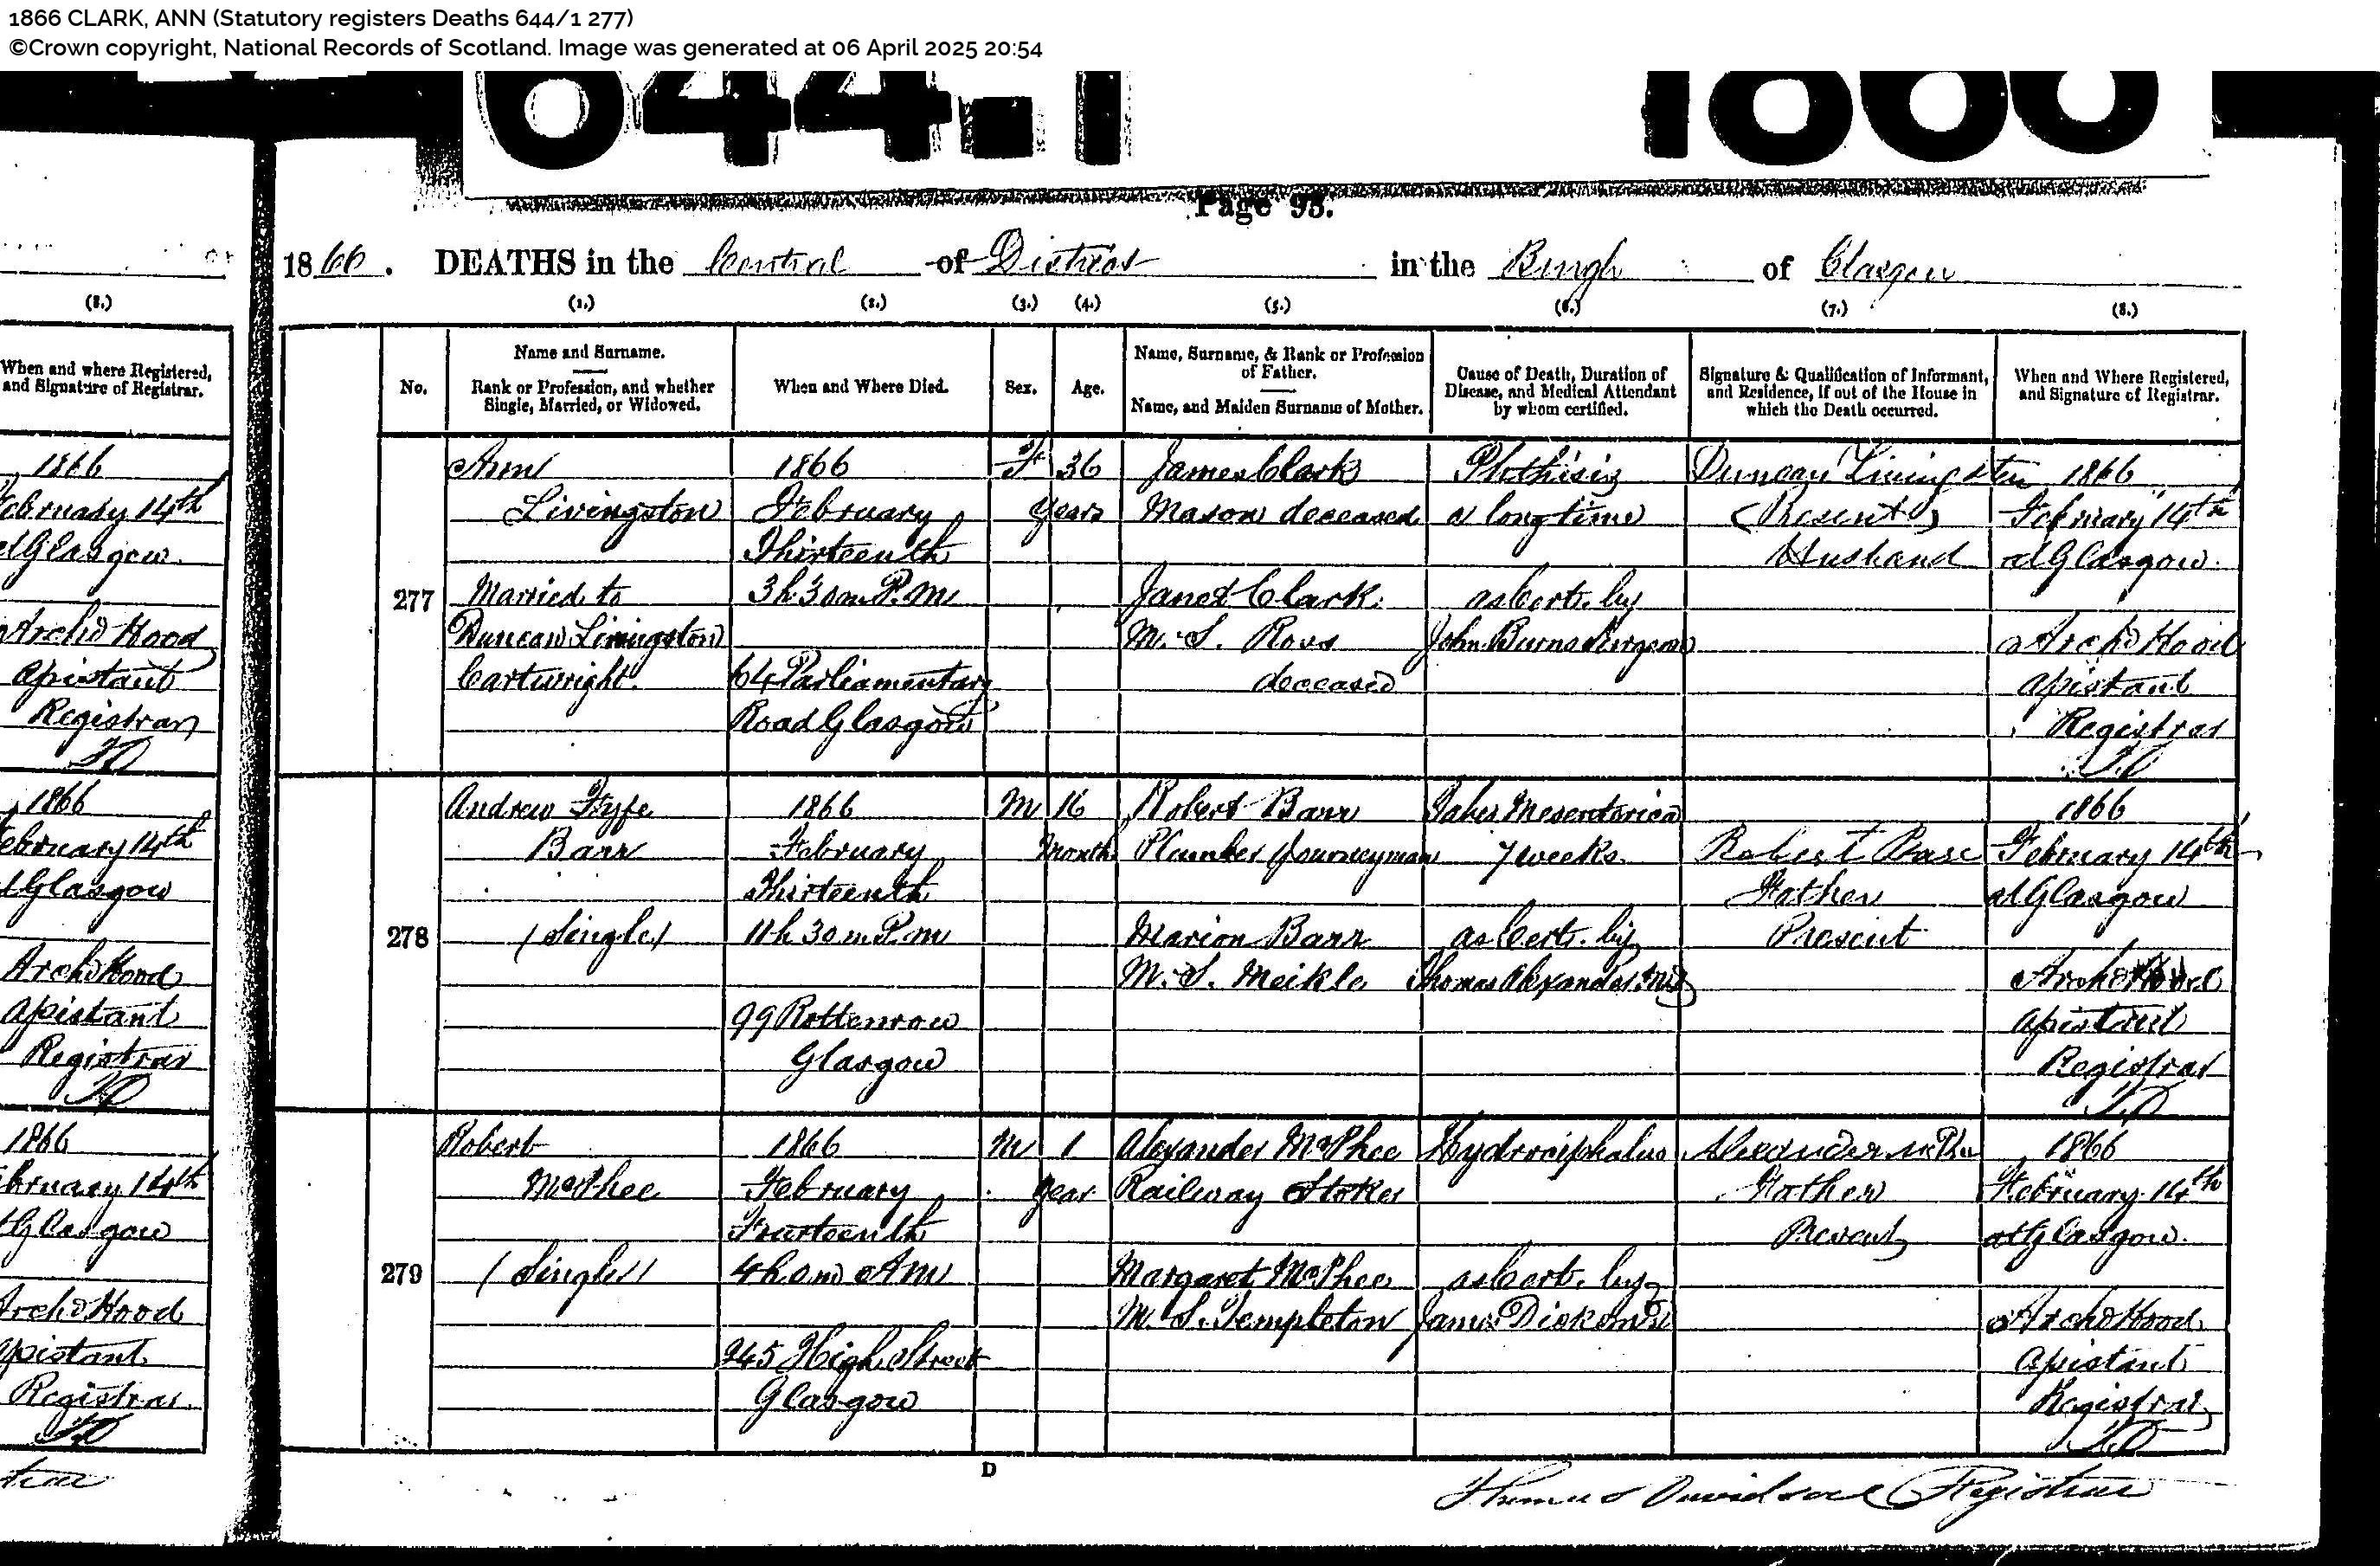 1866 CLARK, ANN (Statutory registers Deaths 644/1 277)
©Crown copyright, National Records of Scotland. Image was generated at 06 April 2025 20:54
644.1 1866
Page 93.
1866. DEATHS in the Central of District in the Burgh of Glasgow
(8.) (1.) (2.) (3.) (4.) (5.) (6.) (7.) (8.)
When and where Registered, and Signature of Registrar.
No.
Name and Surname.
Rank or Profession, and whether
Single, Married, or Widowed.
When and Where Died.
Sex.
Age.
Name, Surname, & Rank or Profession
of Father.
Name, and Maiden Surname of Mother.
Cause of Death, Duration of
Disease, and Medical Attendant
by whom certified.
Signature & Qualification of Informant,
and Residence, if out of the House in
which the Death occurred.
When and Where Registered,
and Signature of Registrar.
1866
February 14th
at Glasgow.
Archd Hood
Assistant
Registrar
TD
277
Ann
Livingston
Married to
Duncan Livingston
Cartwright.
1866
February
Thirteenth
3h 30m P.M
64 Parliamentary
Road Glasgow
F
36
years
James Clark
Mason deceased
Janet Clark.
M.S. Ross
deceased
Phthisis
a long time
as Cert. by
John Burns Surgeon
Duncan Livingston
(Present)
Husband
1866
February 14th
at Glasgow.
Archd Hood
Assistant
Registrar
TD
1866
February 14th
at Glasgow
Archd Hood
Assistant
Registrar
TD
278
Andrew Fyfe
Barr
(Single)
1866
February
Thirteenth
11h 30m P.m
99 Rottenrow
Glasgow
M
16
months
Robert Barr
Plumber Journeyman
Marion Barr
M.S. Meikle
Tabes Mesenterica
7 weeks.
as Cert. by
Thomas Alexander. MD
Robert Barr
Father
Present
1866
February 14th
at Glasgow
Archd Hood
Assistant
Registrar
TD
1866
February 14th
at Glasgow
Archd Hood
Assistant
Registrar.
TD
279
Robert
McPhee
(Single)
1866
February
Fourteenth
4h 0m A M
245 High Street
Glasgow
M
1
year
Alexander McPhee
Railway Stoker
Margaret McPhee
M.S. Templeton
Hydrocephalus
as Cert. by
James Dickson
Alexander McPhee
Father
Present
1866
February 14th
at Glasgow.
Archd Hood
Assistant
Registrar
TD
D
Thomas Davidson Registrar